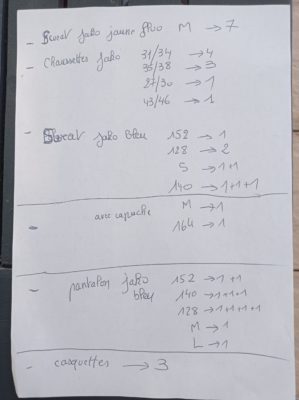 - Sweat Jako jaune fluo M → 7
- Chaussettes Jako 31/34 → 4
35/38 → 3
27/30 → 1
43/46 → 1
- Sweat Jako bleu 152 → 1
128 → 2
S → 1+1
140 → 1+1+1
avec capuche M → 1
- 164 → 1
- pantalon Jako 152 → 1+1
bleu 140 → 1+1+1
128 → 1+1+1+1
M → 1
L → 1
- casquettes → 3